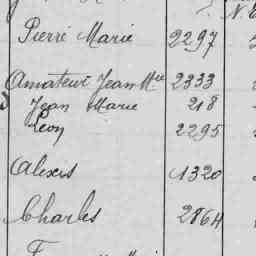 N. E
Pierre Marie 2297
Amateur Jean Mie 2333
Jean Marie 218
Léon 2295
Alexis 1320
Charles 2864